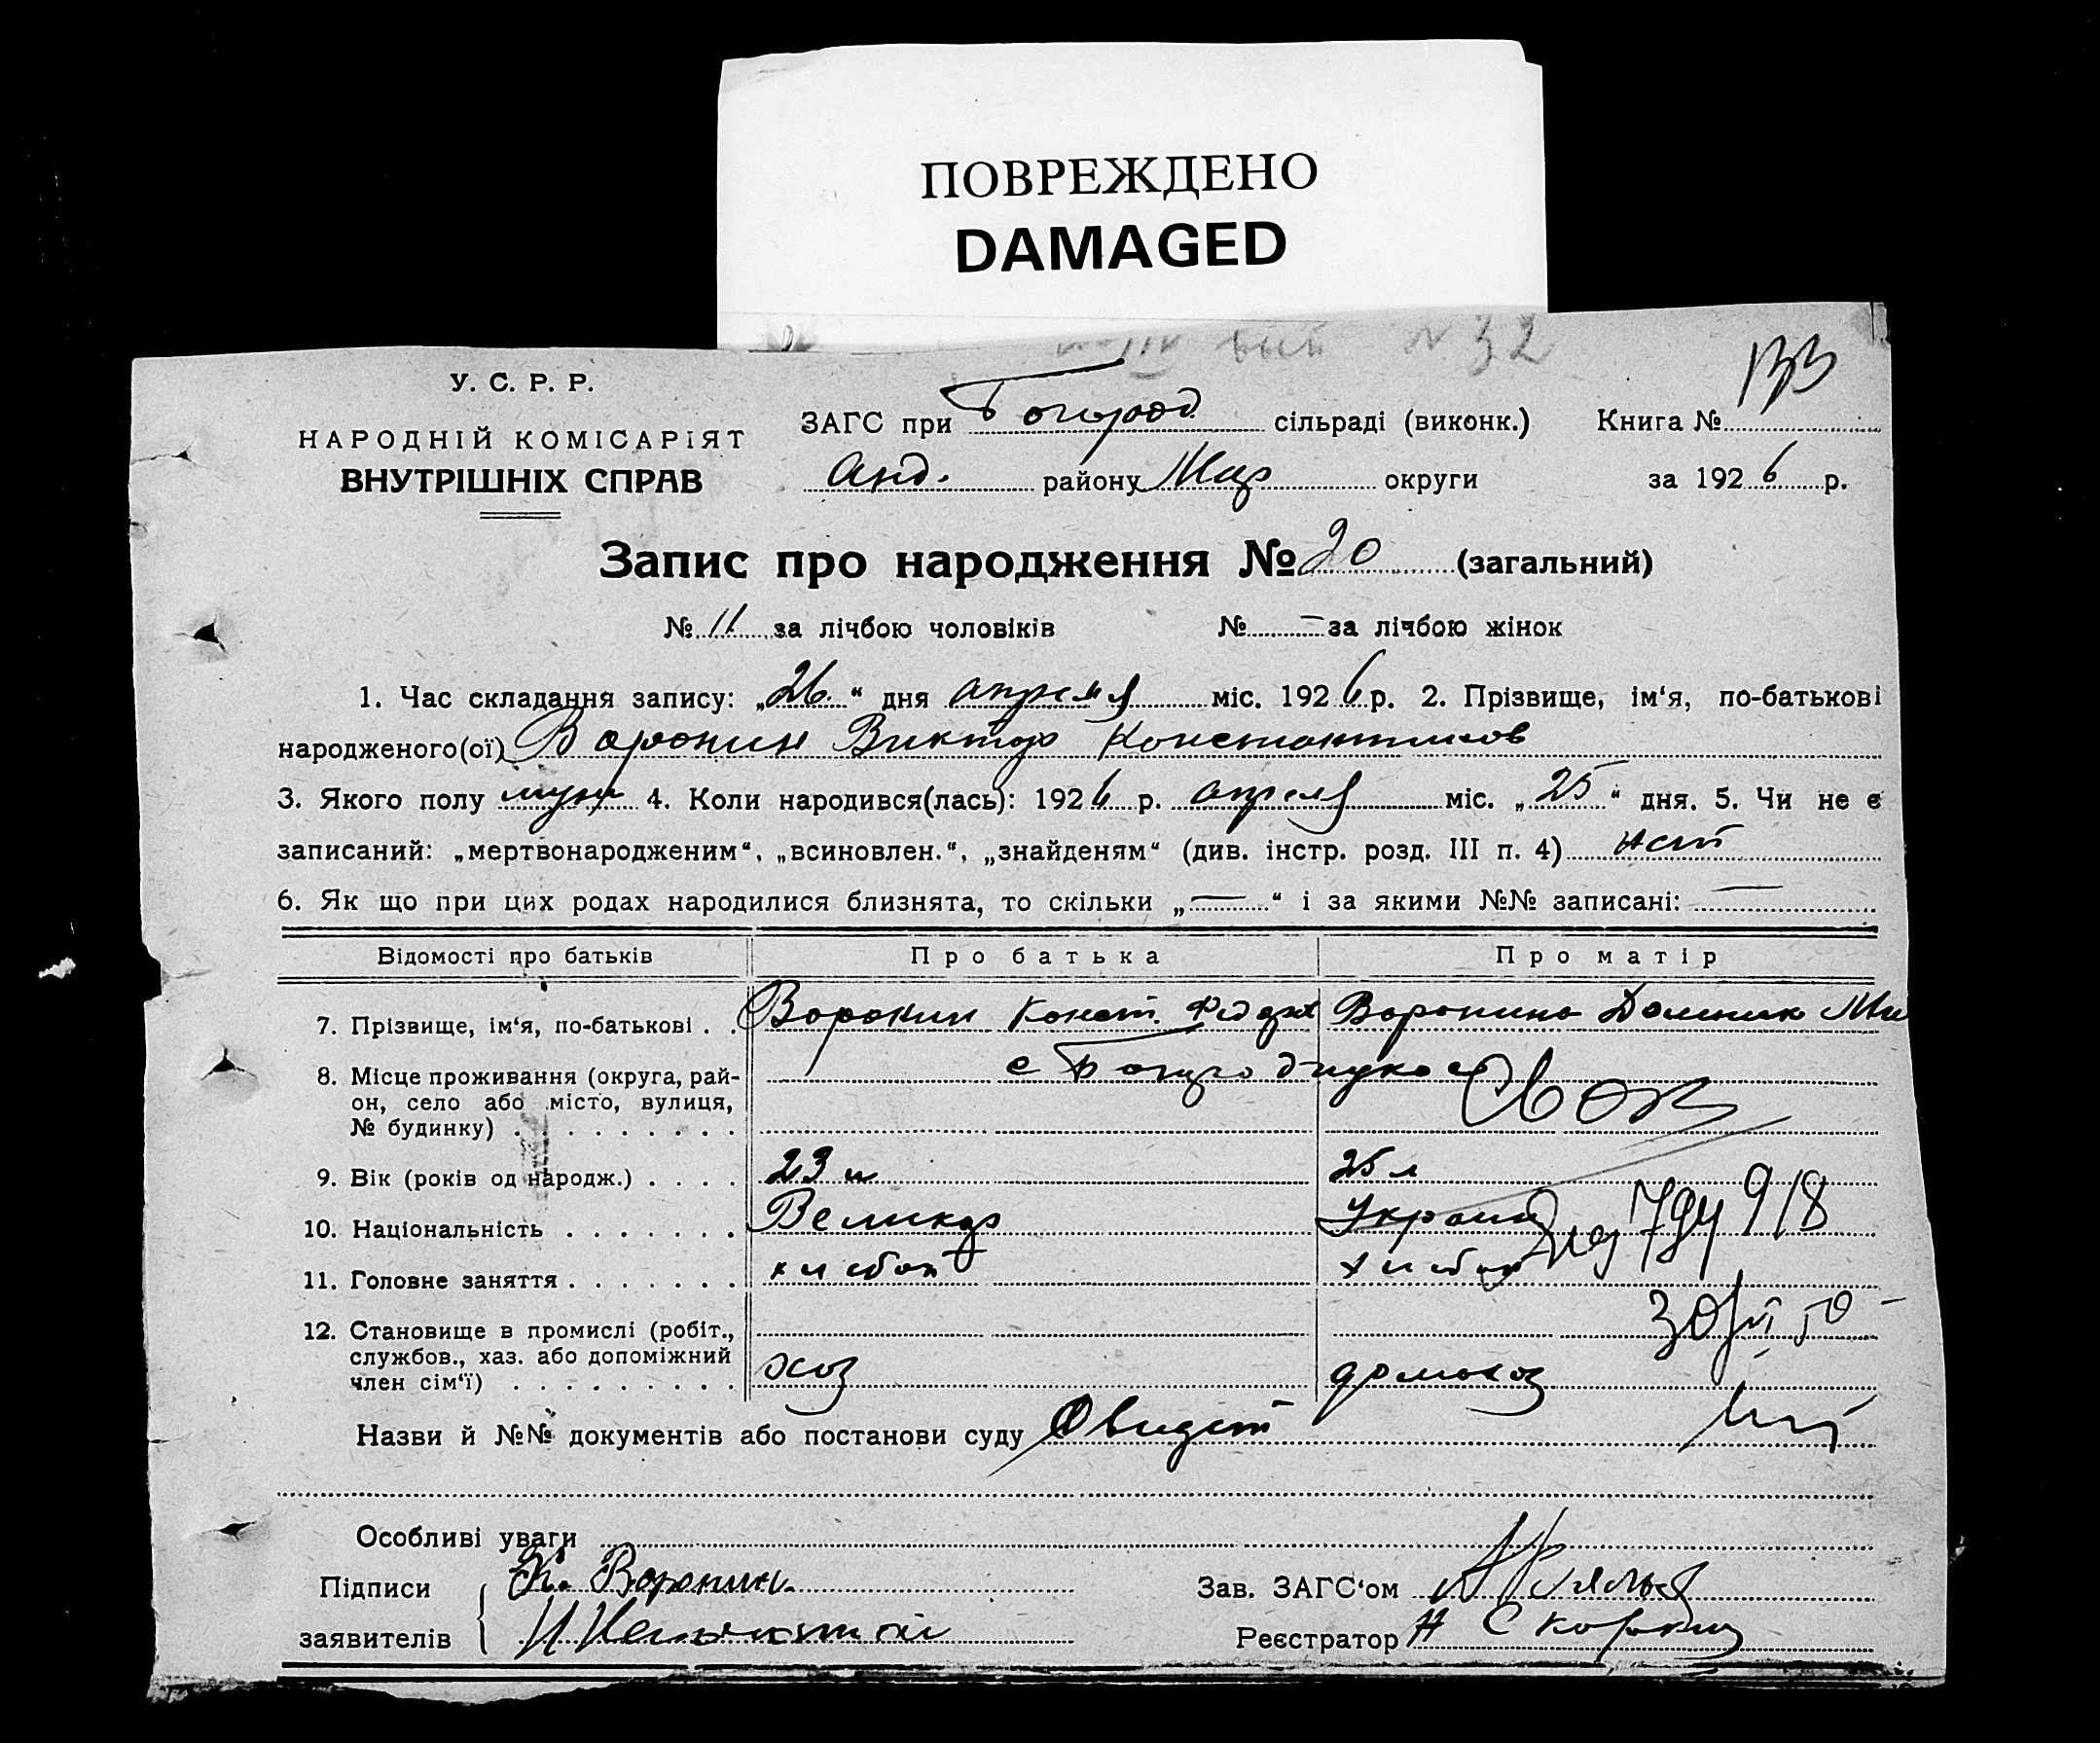 ПОВРЕЖДЕНО
DAMAGED
N 32
133
У. С. Р. Р.
НАРОДНІЙ КОМІСАРІЯТ
ВНУТРІШНІХ СПРАВ
ЗАГС при Богород сільраді (виконк.) Книга №
Анд. району Мар округи за 1926 р.
Запис про народження № 20 (загальний)
№ 11 за лічбою чоловіків № — за лічбою жінок
1. Час складання запису: „26“ дня апреля міс. 1926 р. 2. Прізвище, ім‘я, по-батькові
народженого(ої) Воронин Виктор Константинов
3. Якого полу муж 4. Коли народився(лась): 1926 р. апреля міс. „25“ дня. 5. Чи не є
записаний: „мертвонародженим“, „всиновлен.“, „знайденям“ (див. інстр. розд. III п. 4) нет
6. Як що при цих родах народилися близнята, то скільки „—“ і за якими №№ записані: —
Відомості про батьків Про батька Про матір
7. Прізвище, ім‘я, по-батькові . . Воронин Конст. Федор Воронина
8. Місце проживання (округа, рай-
он, село або місто, вулиця,
№ будинку) . . . . . . . . .
9. Вік (років од народж.) . . . . 23 л 25 л
10. Національність . . . . . . . Великор Украин
11. Головне заняття . . . . . . . хлебоп хлебоп
12. Становище в промислі (робіт.,
службов., хаз. або допоміжний
член сім‘ї) . . . . . . . . . хоз домохоз
Назви й №№ документів або постанови суду
Особливі уваги
Підписи К. Воронин Зав. ЗАГС‘ом
заявителів Реєстратор Н Скоркин